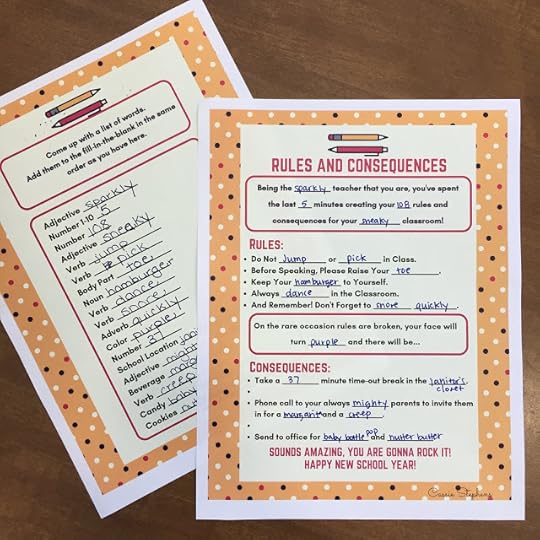 Come up with a list of words.
Add them to the fill-in-the-blank in the same
order as you have here.
Adjective sparkly
Number 1-10 5
Number 108
Adjective sneaky
Verb jump
Verb pick
Body Part toe
Noun hamburger
Verb dance
Verb snore
Adverb quickly
Color purple
Number 37
School Location jani
Adjective migh
Beverage marga
Verb creep
Candy baby
Cookies nu
RULES AND CONSEQUENCES
Being the sparkly teacher that you are, you've spent
the last 5 minutes creating your 108 rules and
consequences for your sneaky classroom!
RULES:
• Do Not jump or pick in Class.
• Before Speaking, Please Raise Your toe.
• Keep Your hamburger to Yourself.
• Always dance in the Classroom.
• And Remember! Don't Forget to snore quickly.
On the rare occasion rules are broken, your face will
turn purple and there will be...
CONSEQUENCES:
• Take a 37 minute time-out break in the janitor's
closet
• Phone call to your always mighty parents to invite them
in for a margarit and a creep.
• Send to office for baby bottle pop and nutter butter
SOUNDS AMAZING, YOU ARE GONNA ROCK IT!
HAPPY NEW SCHOOL YEAR!
Cassie Stephens